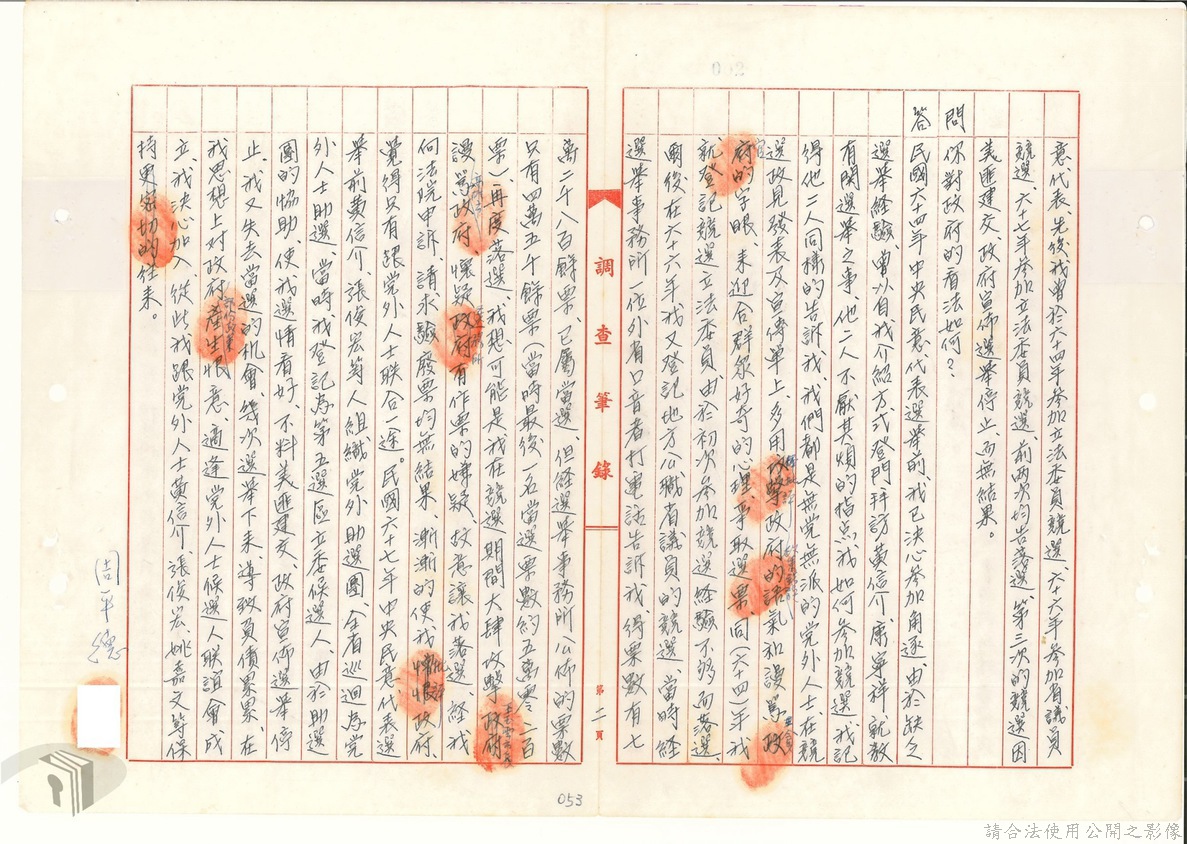 意代表、先後我曾於六十四年參加立法委員競選、六十六年參加省議員
競選、六十七年參加立法委員競選、前兩次均告落選、第三次的競選因
美匪建交、政府宣佈選舉停止而無結果。
問 你對政府的看法如何?
答 民國六十四年中央民意代表選舉前、我已決心參加角逐、由於缺乏
選舉經驗、曾以自我介紹方式登門拜訪黃信介、康寧祥就教
有關選舉之事、他二人不厭其煩的指点我如何參加競選、我記
得他二人同樣的告訴我、我們都是無党無派的党外人士在競
選政見發表及宣傳單上、多用攻擊政府的語氣和謾罵政
府的字眼、来迎合群衆好奇的心理、爭取選票、同(六十四)年我
就登記競選立法委員、由於初次參加競選經驗不够而落選、
嗣後在六十六年我又登記地方公職省議員的競選、當時經
選舉事務所一位外省口音者打電話告訴我、得票數有七
調查筆錄
第二頁
萬二千八百餘票、已屬當選、但經選舉事務所公佈的票數
只有四萬五千餘票(當時最後一名當選票數約五萬零一百
票)再度落選、我想可能是我在競選期間大肆攻擊政府
謾罵政府、懷疑政府有作票的嫌疑、故意讓我落選、經我
向法院申訴、請求驗廢票均無結果、漸漸的使我憎恨政府、
覺得只有跟党外人士联合一途。民國六十七年中央民意代表選
舉前黃信介、張俊宏等人組織党外助選團、全省巡迴為党
外人士助選、當時我登記為第五選區立委候選人、由於助選
團的協助、使我選情看好、不料美匪建交、政府宣佈選舉停
止、我又失去當選的机會、幾次選舉下来、導致負債累累、在
我思想上對政府產生恨意、適逢党外人士候選人联誼會成
立、我決心加入、從此我跟党外人士黃信介、張俊宏、姚嘉文等保
持更密切的往来。
周平德
053
請合法使用公開之影像